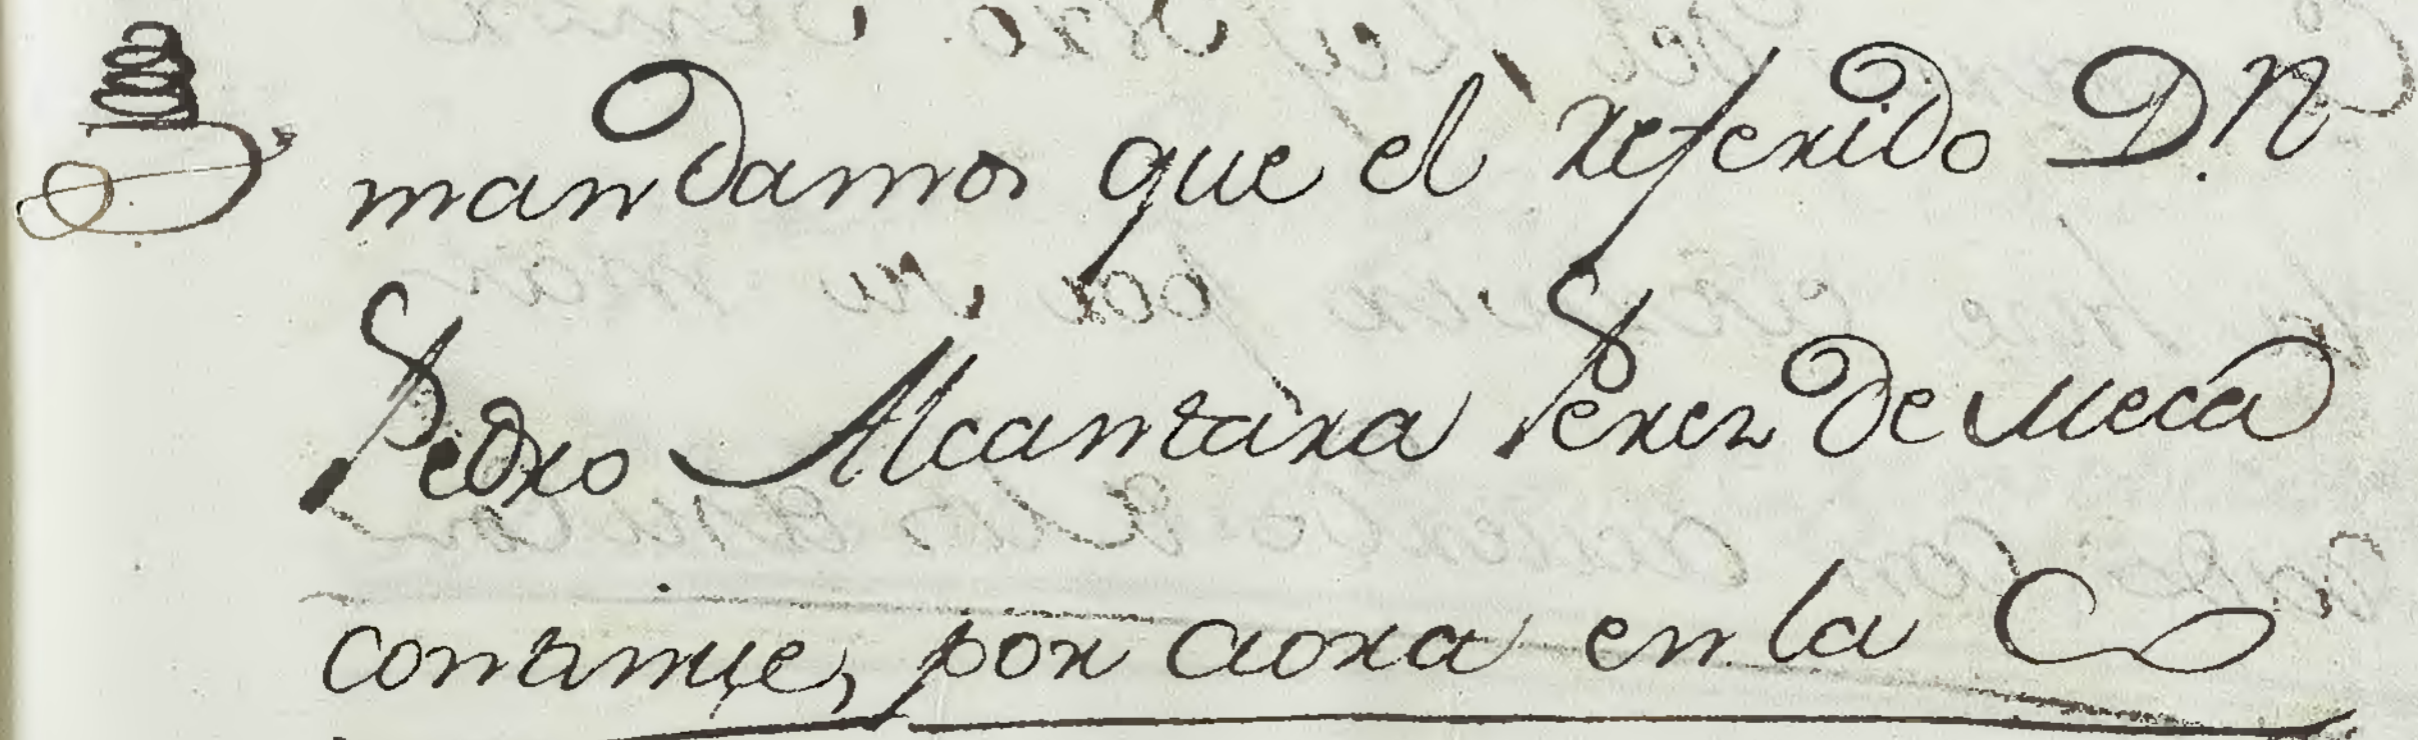 mandamos que el referido D.n
Pedro Alcantara Perez de Meca
continue, por aora en la